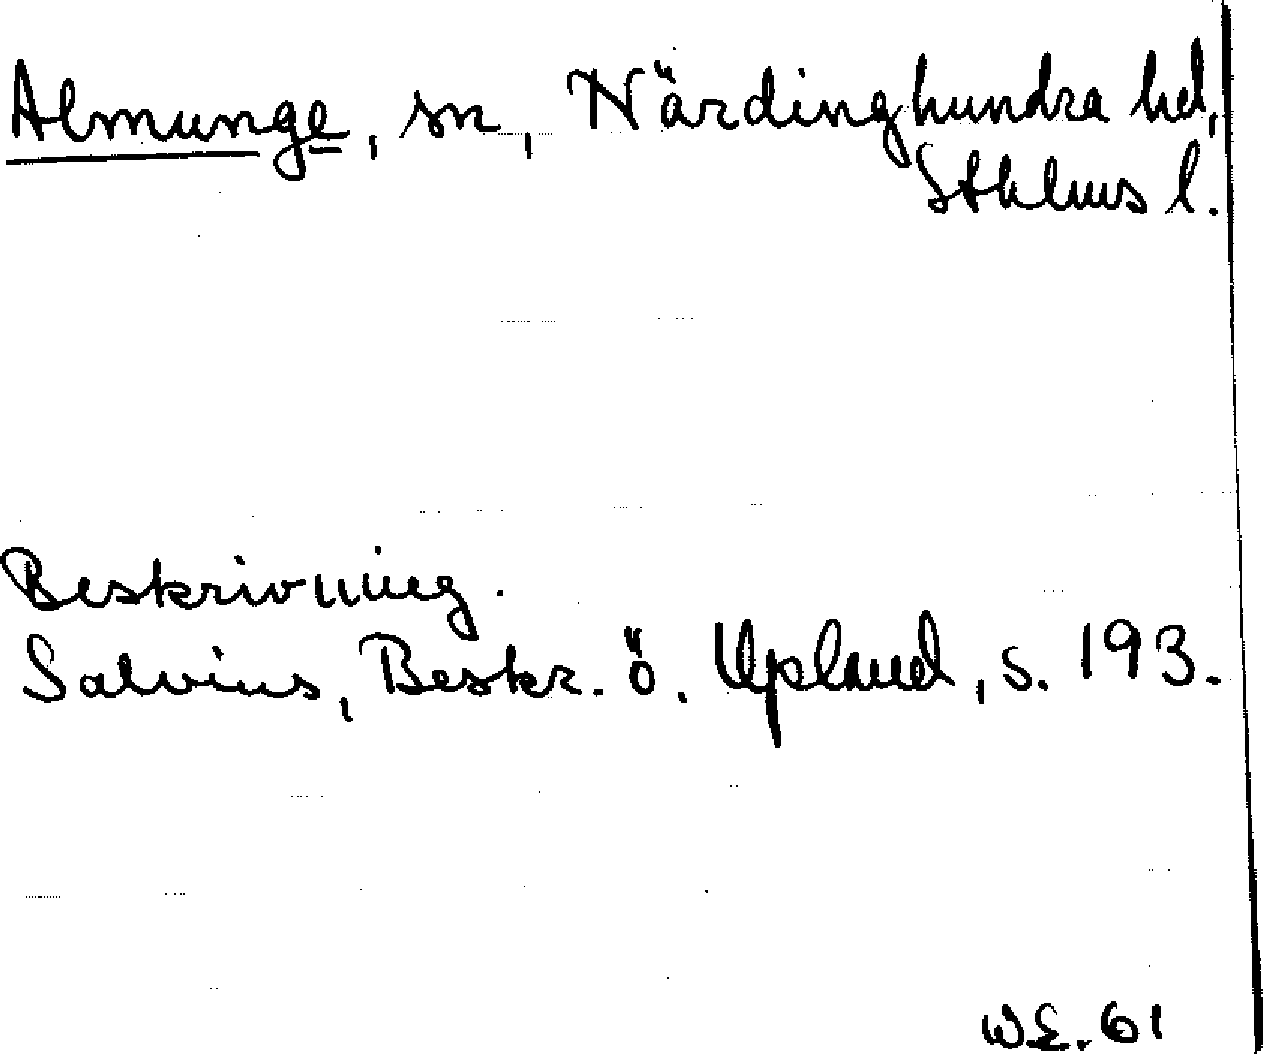 Almunge, sn, Närdinghundra hd,
Sthlms l.
Beskrivning.
Salvius, Beskr. ö. Upland, s. 193.
W.E. 61